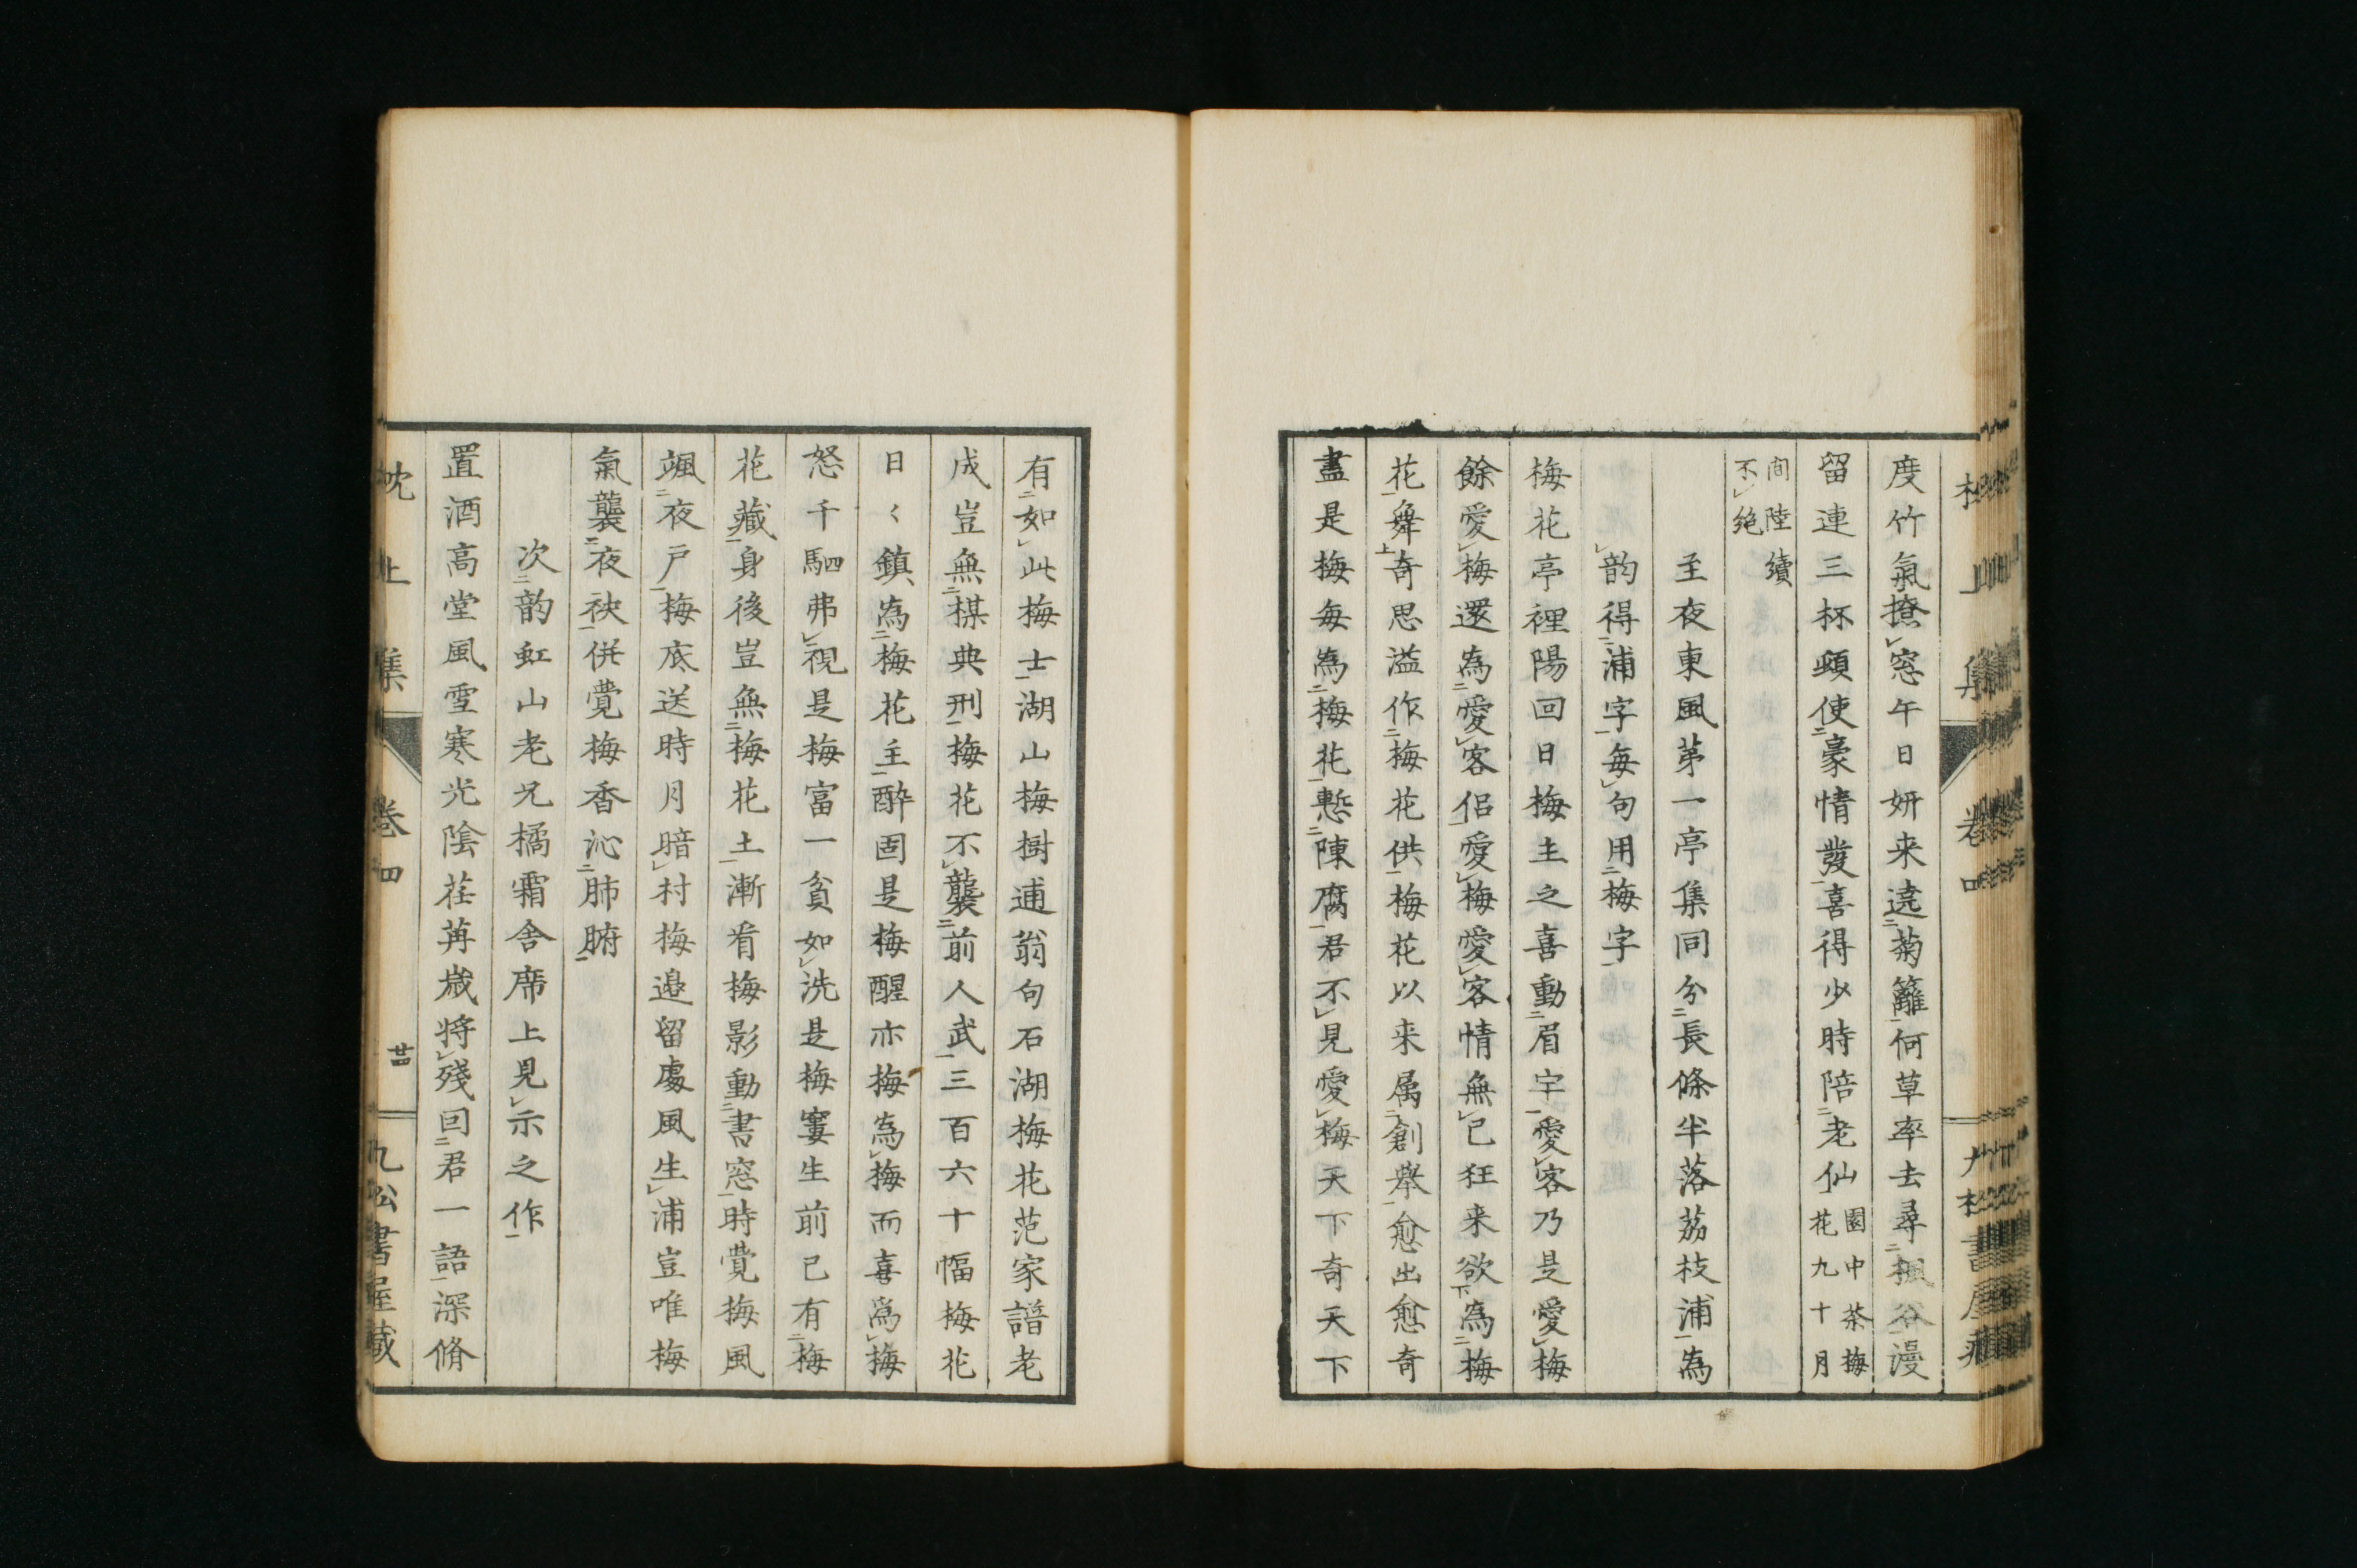 度竹氣撩窓午日妍来遶菊籬何草率去尋楓谷漫
留連三杯頓使豪情發喜得少時陪老仙園中茶梅花九十月
間陸續不絶
至夜東風苐一亭集同分長條半落荔枝浦為
韵得浦字毎句用梅字
梅花亭裡陽回日梅主之喜動眉宇愛客乃是愛梅
餘愛梅還為愛客侶愛梅愛客情無已狂来欲為梅
花舜奇思溢作梅花供梅花以来属創舉愈出愈奇
盡是梅毎為梅花慙陳腐君不見愛梅天下奇天下
有如此梅士湖山梅樹逋翁句石湖梅花范家譜老
成豈無楳典刑梅花不襲前人武三百六十幅梅花
日〻鎮為梅花主酔固是梅醒亦梅為梅而喜為梅
怒千駟弗視是梅富一貧如洗是梅寠生前已有梅
花藏身後豈無梅花土漸看梅影動書窓時覺梅風
颯夜戸梅底送時月暗村梅邉留處風生浦豈唯梅
氣襲夜袂併覺梅香沁肺腑
次韵虹山老兄橘霜舎席上見示之作
置酒高堂風雪寒光陰荏苒歳将殘回君一語深脩
枕上集 卷四 廿四 九松書屋蔵